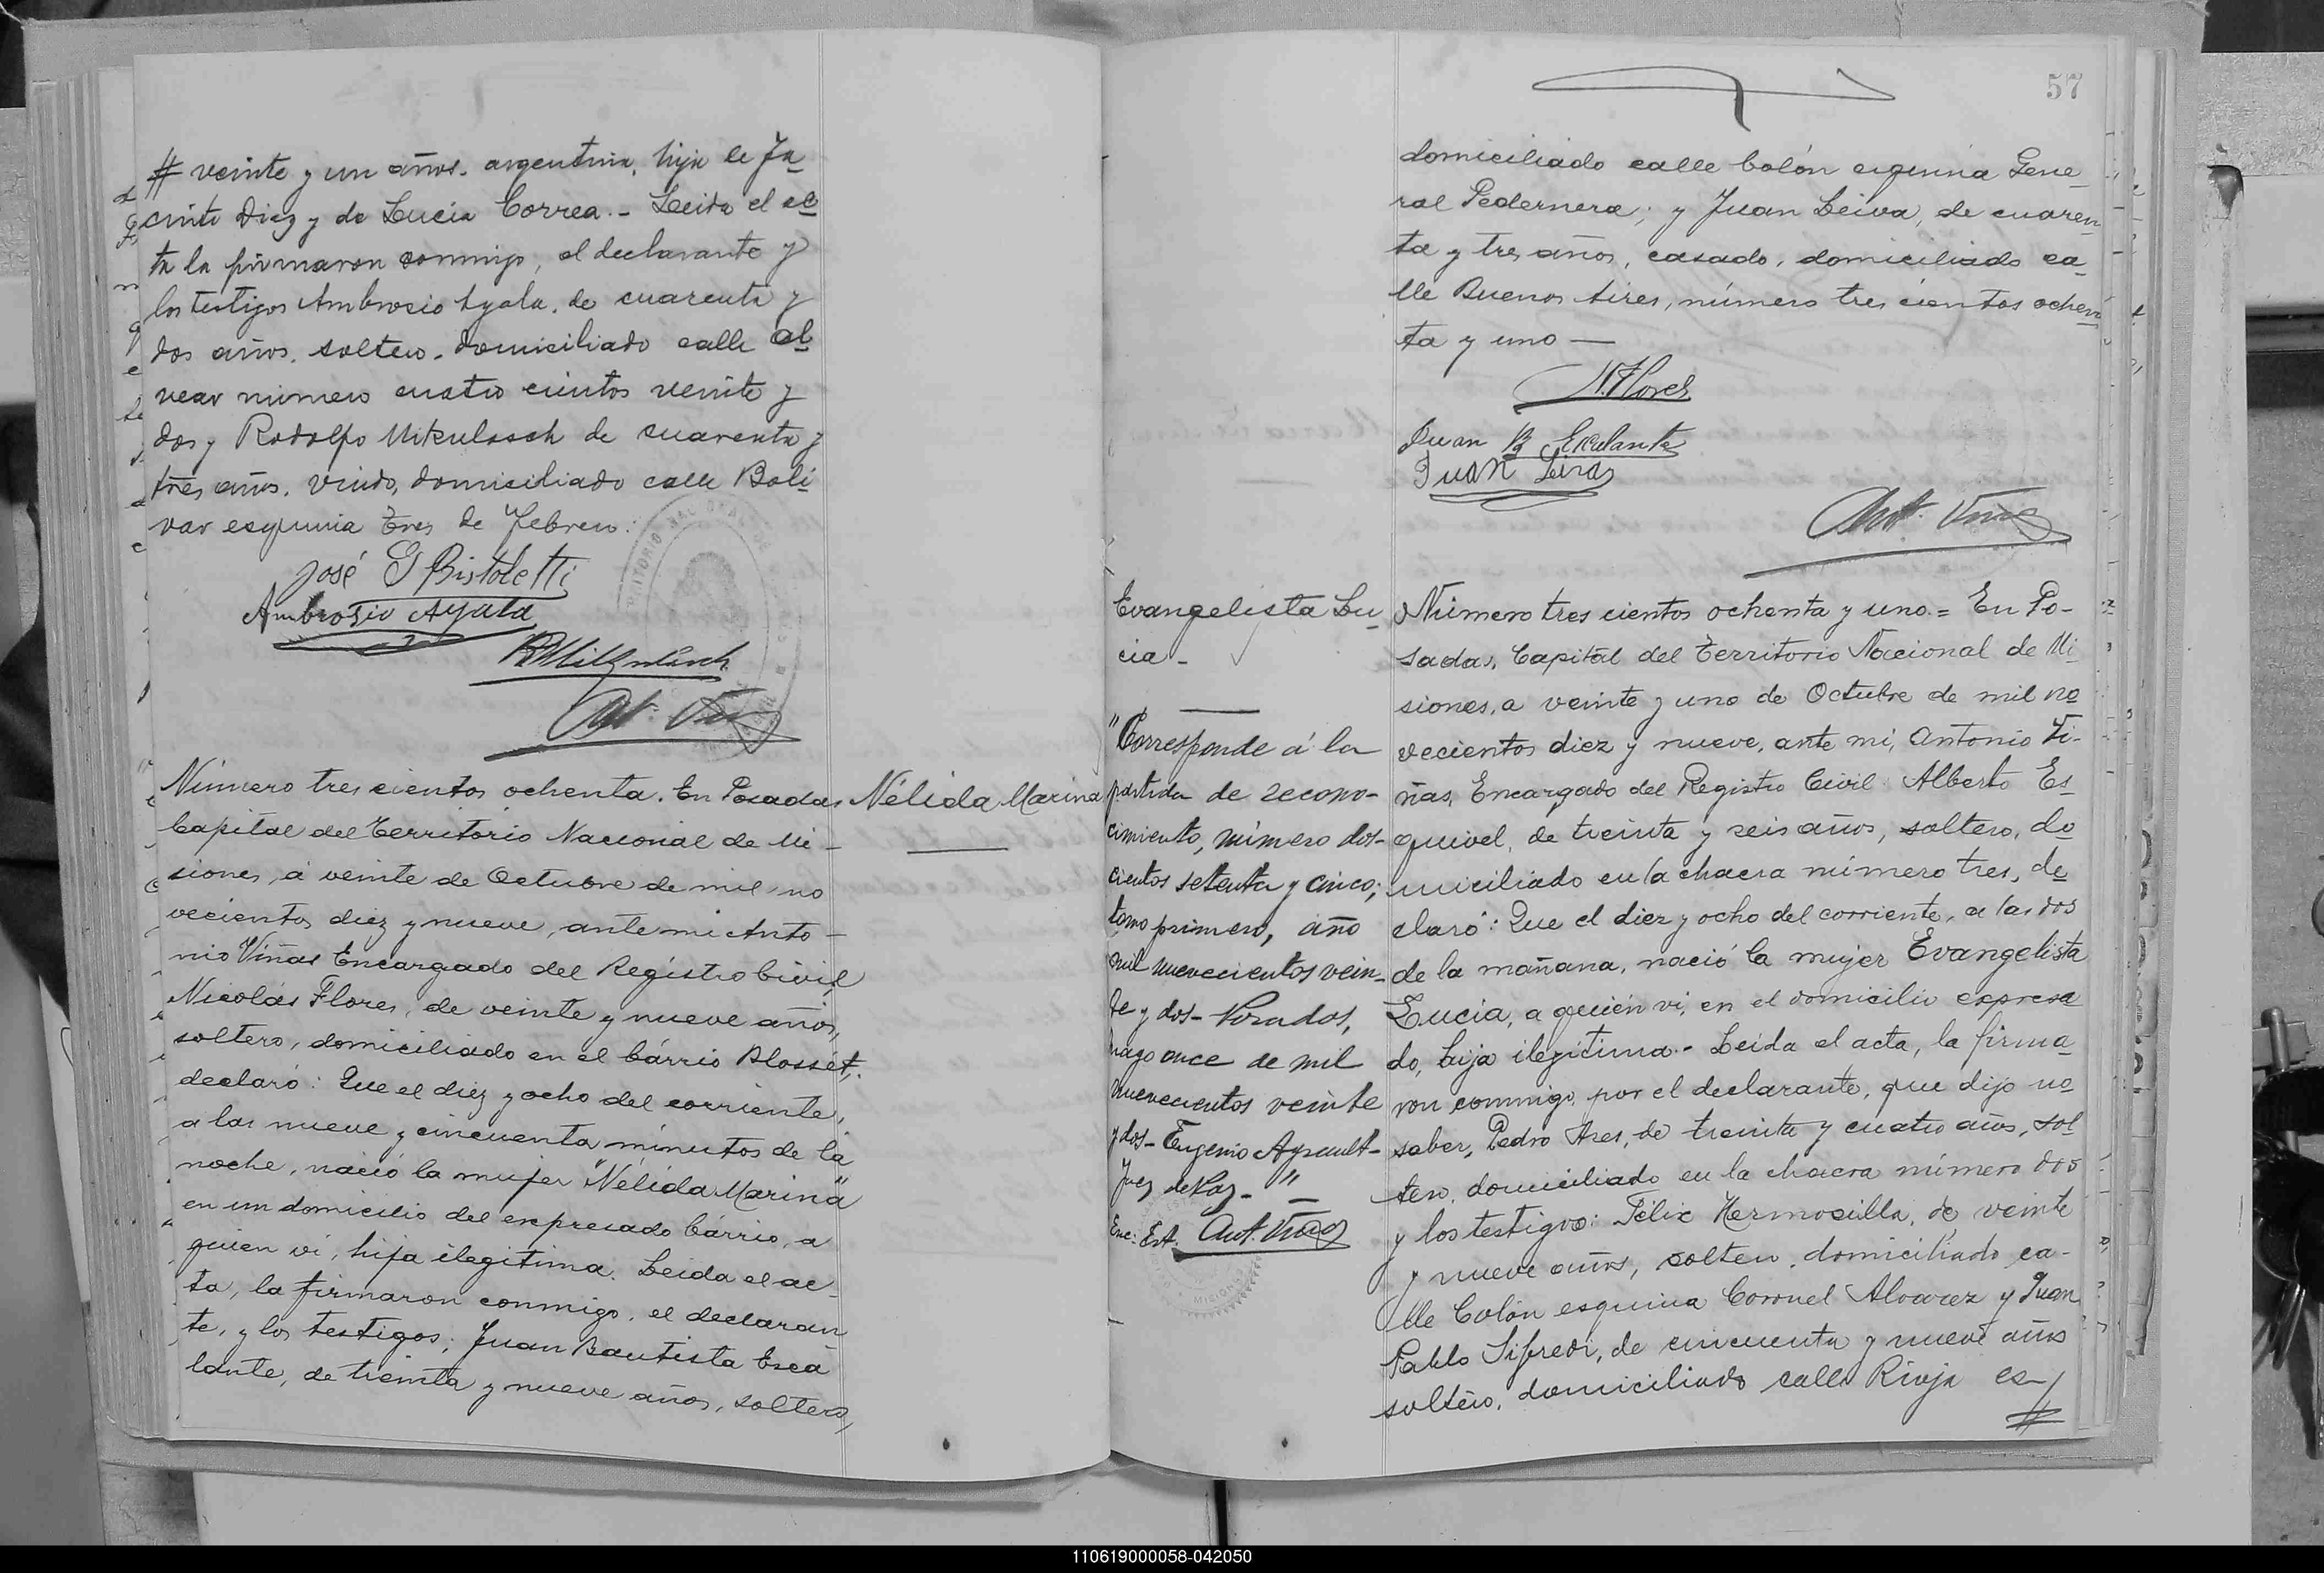 # veinte y un años. argentina, hija de Ja_
cinto Diaz y de Lucia Correa. - Leida el ac
ta la firmaron conmigo, el declarante y
los testigos Ambrosio Ayala, de cuarenta y
dos años, soltero, domiciliado calle Al
vear número cuatro cientos veinte y
dos y Rodolfo Mikulasch de cuarenta y
tres años, viudo, domiciliado calle Boli
var esquina Tres de Febrero.
José G Bistoletti
Ambrosio Ayala
Número tres cientos ochenta. En Posadas
Nélida Marina
Capital del Territorio Nacional de Mi -
siones, á veinte de Octubre de mil no
vecientos diez y nueve, ante mi Anto -
nio Viñas Encargado del Registro Civil,
Nicolás Flores, de veinte y nueve años,
soltero, domiciliado en el bárrio Blosset;
declaró: Que el diez y ocho del corriente,
a las nueve y cincuenta minutos de la
noche, nació la mujer "Nélida Marina"
en un domicilio del expresado bárrio, a
quien vi, hija ilegitima. Leida el ac -
ta, la firmaron conmigo, el declaran
te, y los testigos; Juan Bautista Esca
lante, de treinta y nueve años, soltero,
57
domiciliado calle Colón esquina Gene_
ral Pedernera; y Juan Leiva, de cuaren
ta y tres años, casado, domiciliado ca_
lle Buenos Aires, número tres cientos ochen
ta y uno —
N. Flores
Juan B Escalante
Juan Leiva
Ant. Viñas
Evangelista Lu_
cia -
"Corresponde á la
partida de recono-
cimiento, número dos-
cientos setenta y cinco;
tomo primero, año
mil nuevecientos vein-
te y dos - Posadas,
mayo once de mil
nuevecientos veinte
y dos - Eugenio
Juez de Paz - "
Ant. Viñas
Número tres cientos ochenta y uno. = En Po-
sadas, Capital del Territorio Nacional de Mi
siones, a veinte y uno de Octubre de mil no
vecientos diez y nueve, ante mi, Antonio Vi-
ñas, Encargado del Registro Civil Alberto Es
quivel, de treinta y seis años, soltero, do
miciliado en la chacra número tres, de
claró: Que el diez y ocho del corriente, a las dos
de la mañana, nació la mujer Evangelista
Lucia, a quién vi, en el domicilio expresa
do, hija ilegitima. - Leida el acta, la firma
ron conmigo, por el declarante, que dijo no
saber, Pedro Ares, de treinta y cuatro años, sol
tero, domiciliado en la chacra número dos
y los testigos: Félix Hermosilla, de veinte
y nueve años, soltero, domiciliado ca-
lle Colón esquina Coronel Alvarez y Juan
Pablo Sifredi, de cincuenta y nueve años
soltero, domiciliado calle Rioja es-
#
110619000058-042050